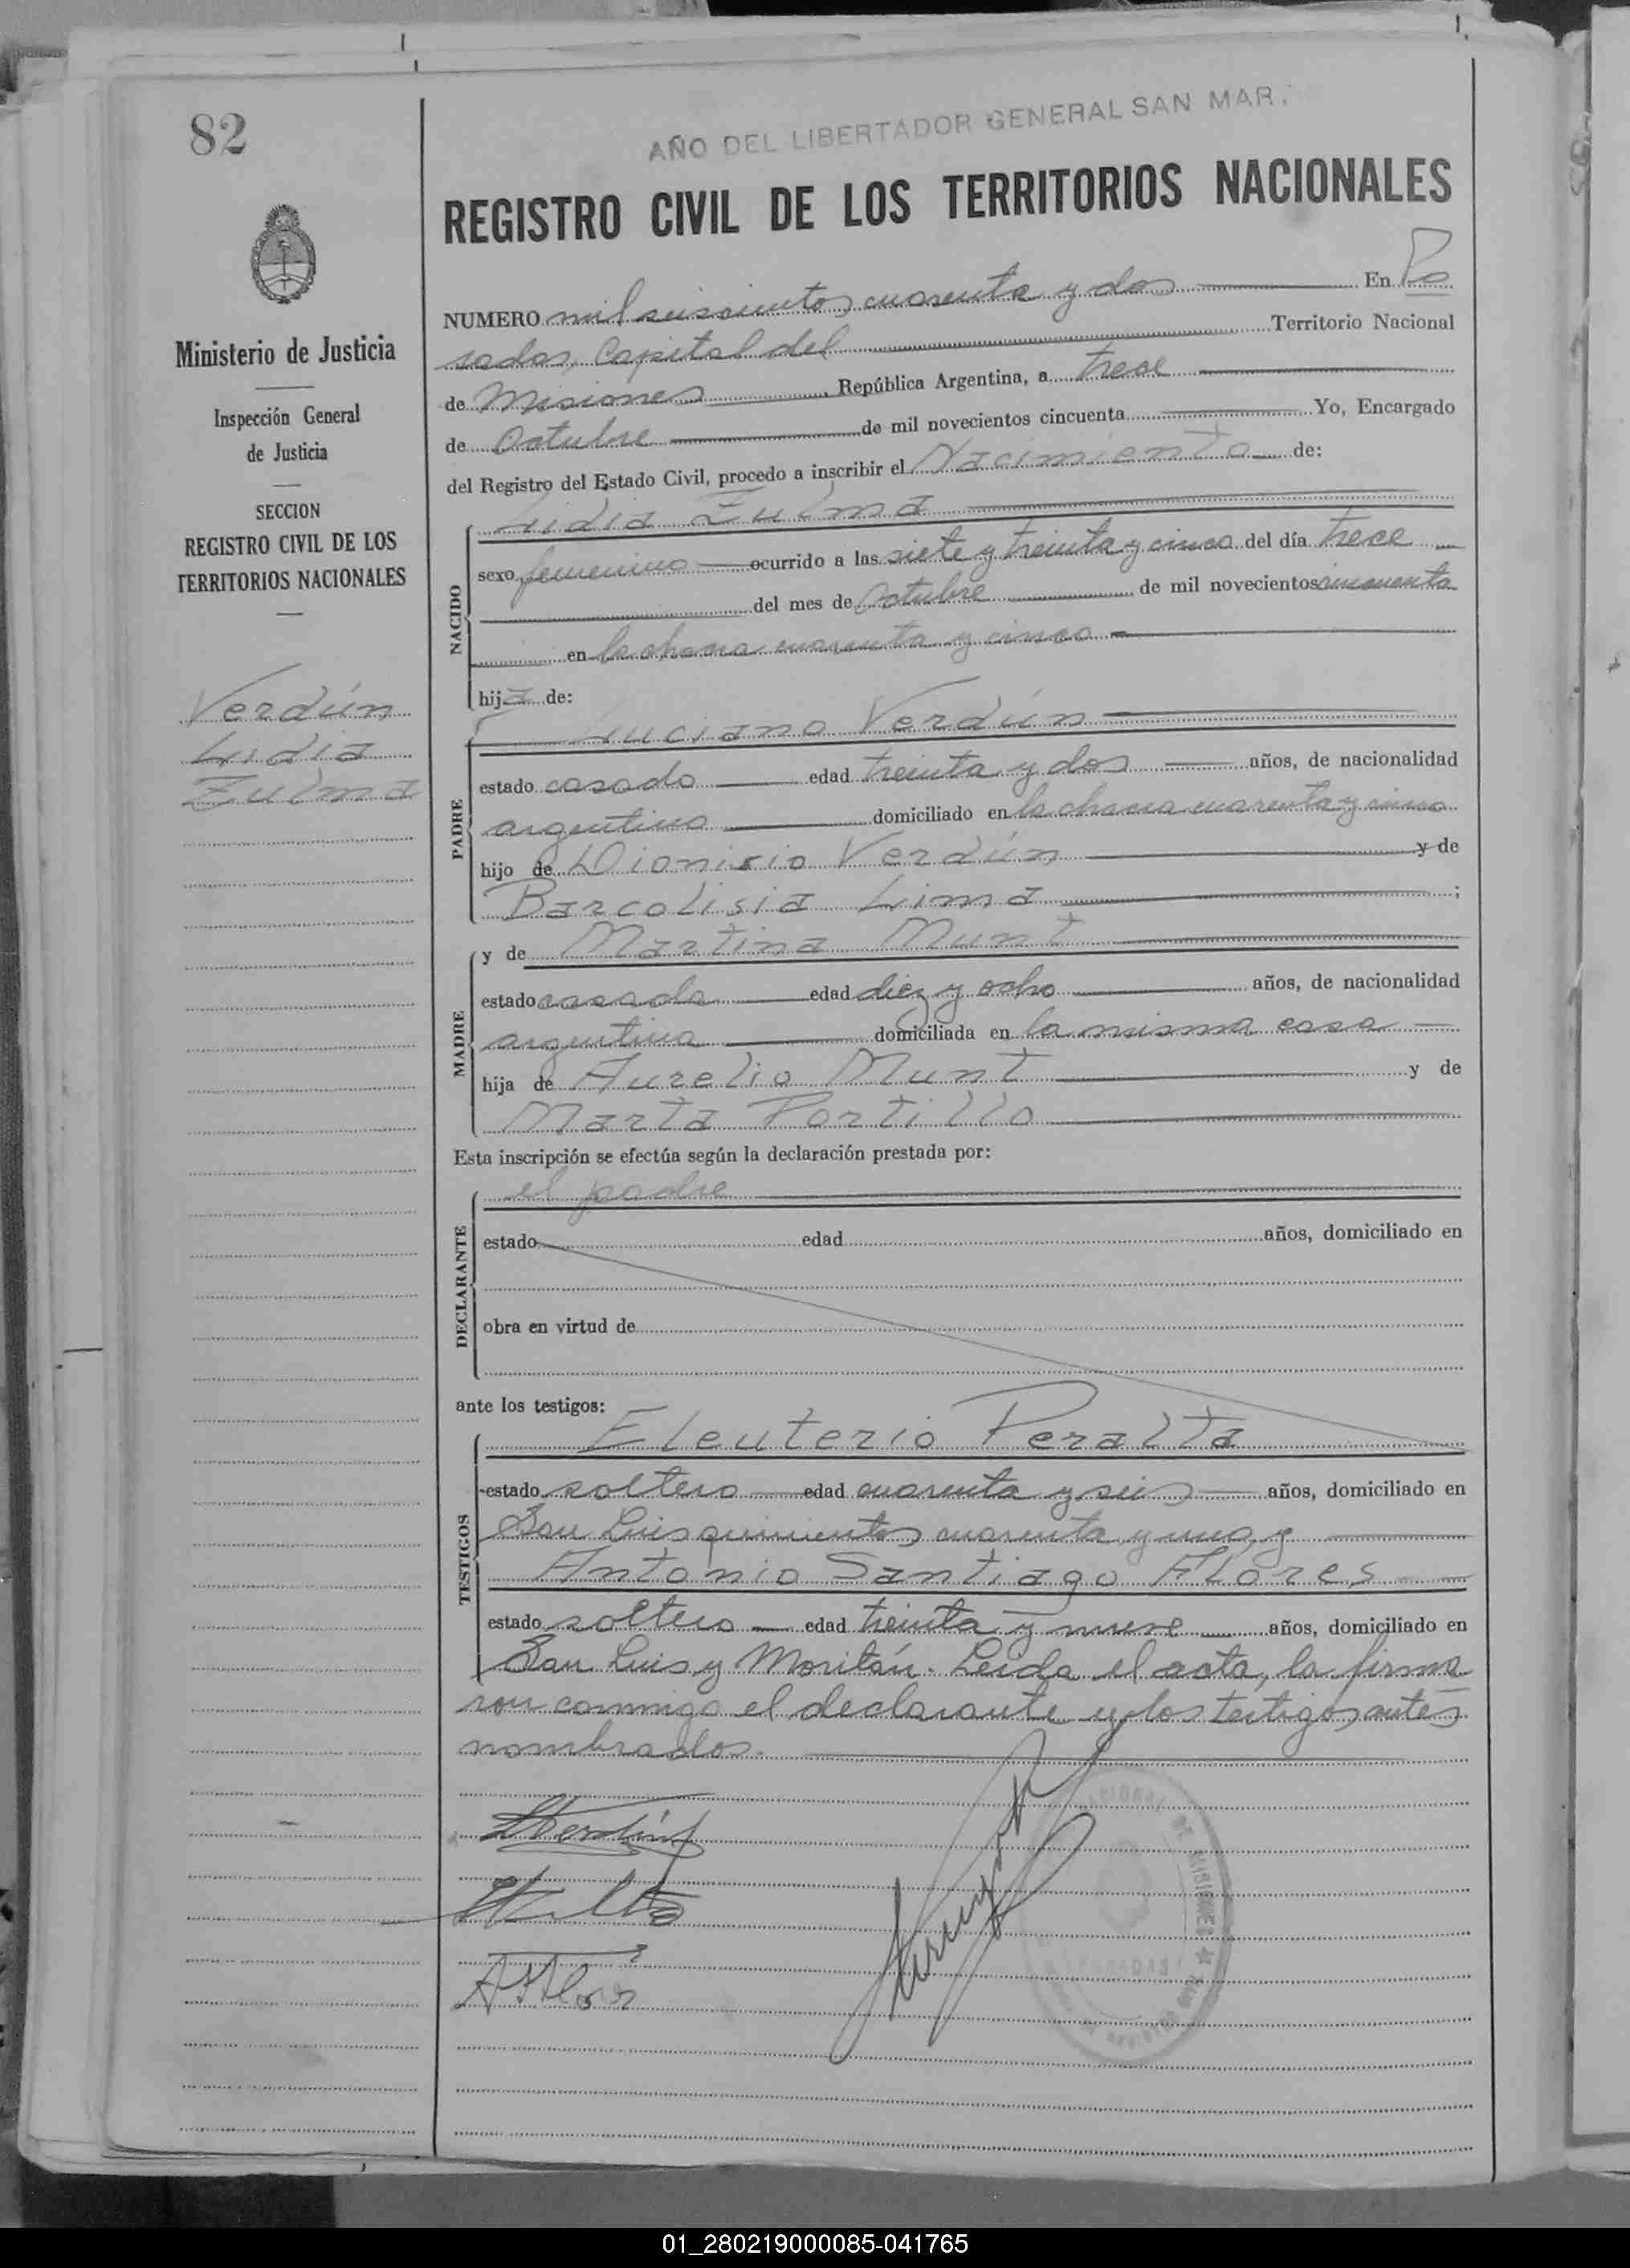 82
AÑO DEL LIBERTADOR GENERAL SAN MAR
REGISTRO CIVIL DE LOS TERRITORIOS NACIONALES
Ministerio de Justicia
Inspección General
de Justicia
SECCION
REGISTRO CIVIL DE LOS
TERRITORIOS NACIONALES
Verdún
Lidia
Zulma
NUMERO mil seiscientos cuarenta y dos En Po
sadas, Capital del Territorio Nacional
de Misiones, República Argentina, a trece
de Octubre de mil novecientos cincuenta Yo, Encargado
del Registro del Estado Civil, procedo a inscribir el Nacimiento de:
NACIDO
Lidia Zulma
sexo femenino ocurrido a las siete y treinta y cinco del día trece
del mes de Octubre de mil novecientos cincuenta
en la chacra cuarenta y cinco
hija de:
PADRE
Luciano Verdún
estado casado edad treinta y dos años, de nacionalidad
argentino domiciliado en la chacra cuarenta y cinco
hijo de Dionisio Verdún y de
Barcolisia Lima;
MADRE
y de Martina Munt
estado casada edad diez y ocho años, de nacionalidad
argentina domiciliada en la misma casa
hija de Aurelio Munt y de
Marta Portillo
Esta inscripción se efectúa según la declaración prestada por:
DECLARANTE
el padre
estado edad años, domiciliado en
obra en virtud de
ante los testigos:
TESTIGOS
Eleuterio Peralta
estado soltero edad cuarenta y seis años, domiciliado en
San Luis quinientos cuarenta y uno, y
Antonio Santiago Flores
estado soltero edad treinta y nueve años, domiciliado en
San Luis y Moritán. Leída el acta, la firma
ron conmigo el declarante y los testigos antes
nombrados.
LVerdún
ASFlores
MISIONES
POSADAS
01_280219000085-041765